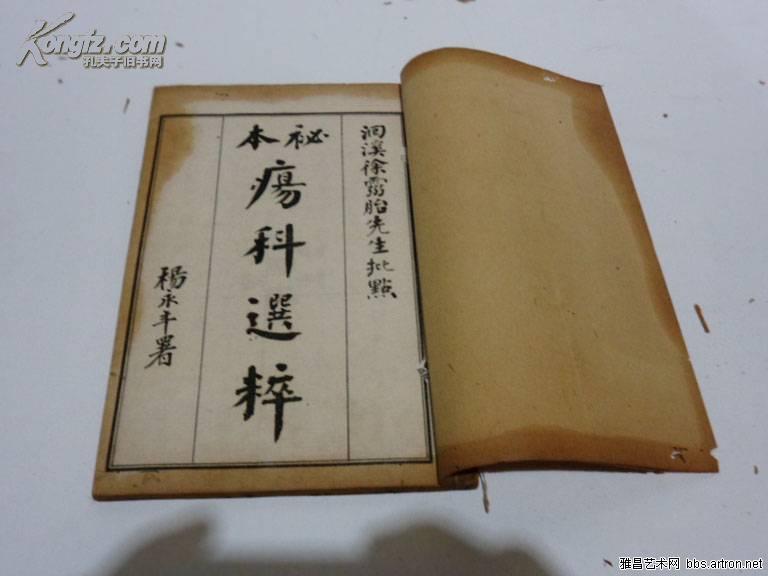 Kongfz.com
孔夫子旧书网
洄溪徐靈胎先生批點
祕本
瘍科選粹
楊永年署
雅昌艺术网 bbs.artron.net